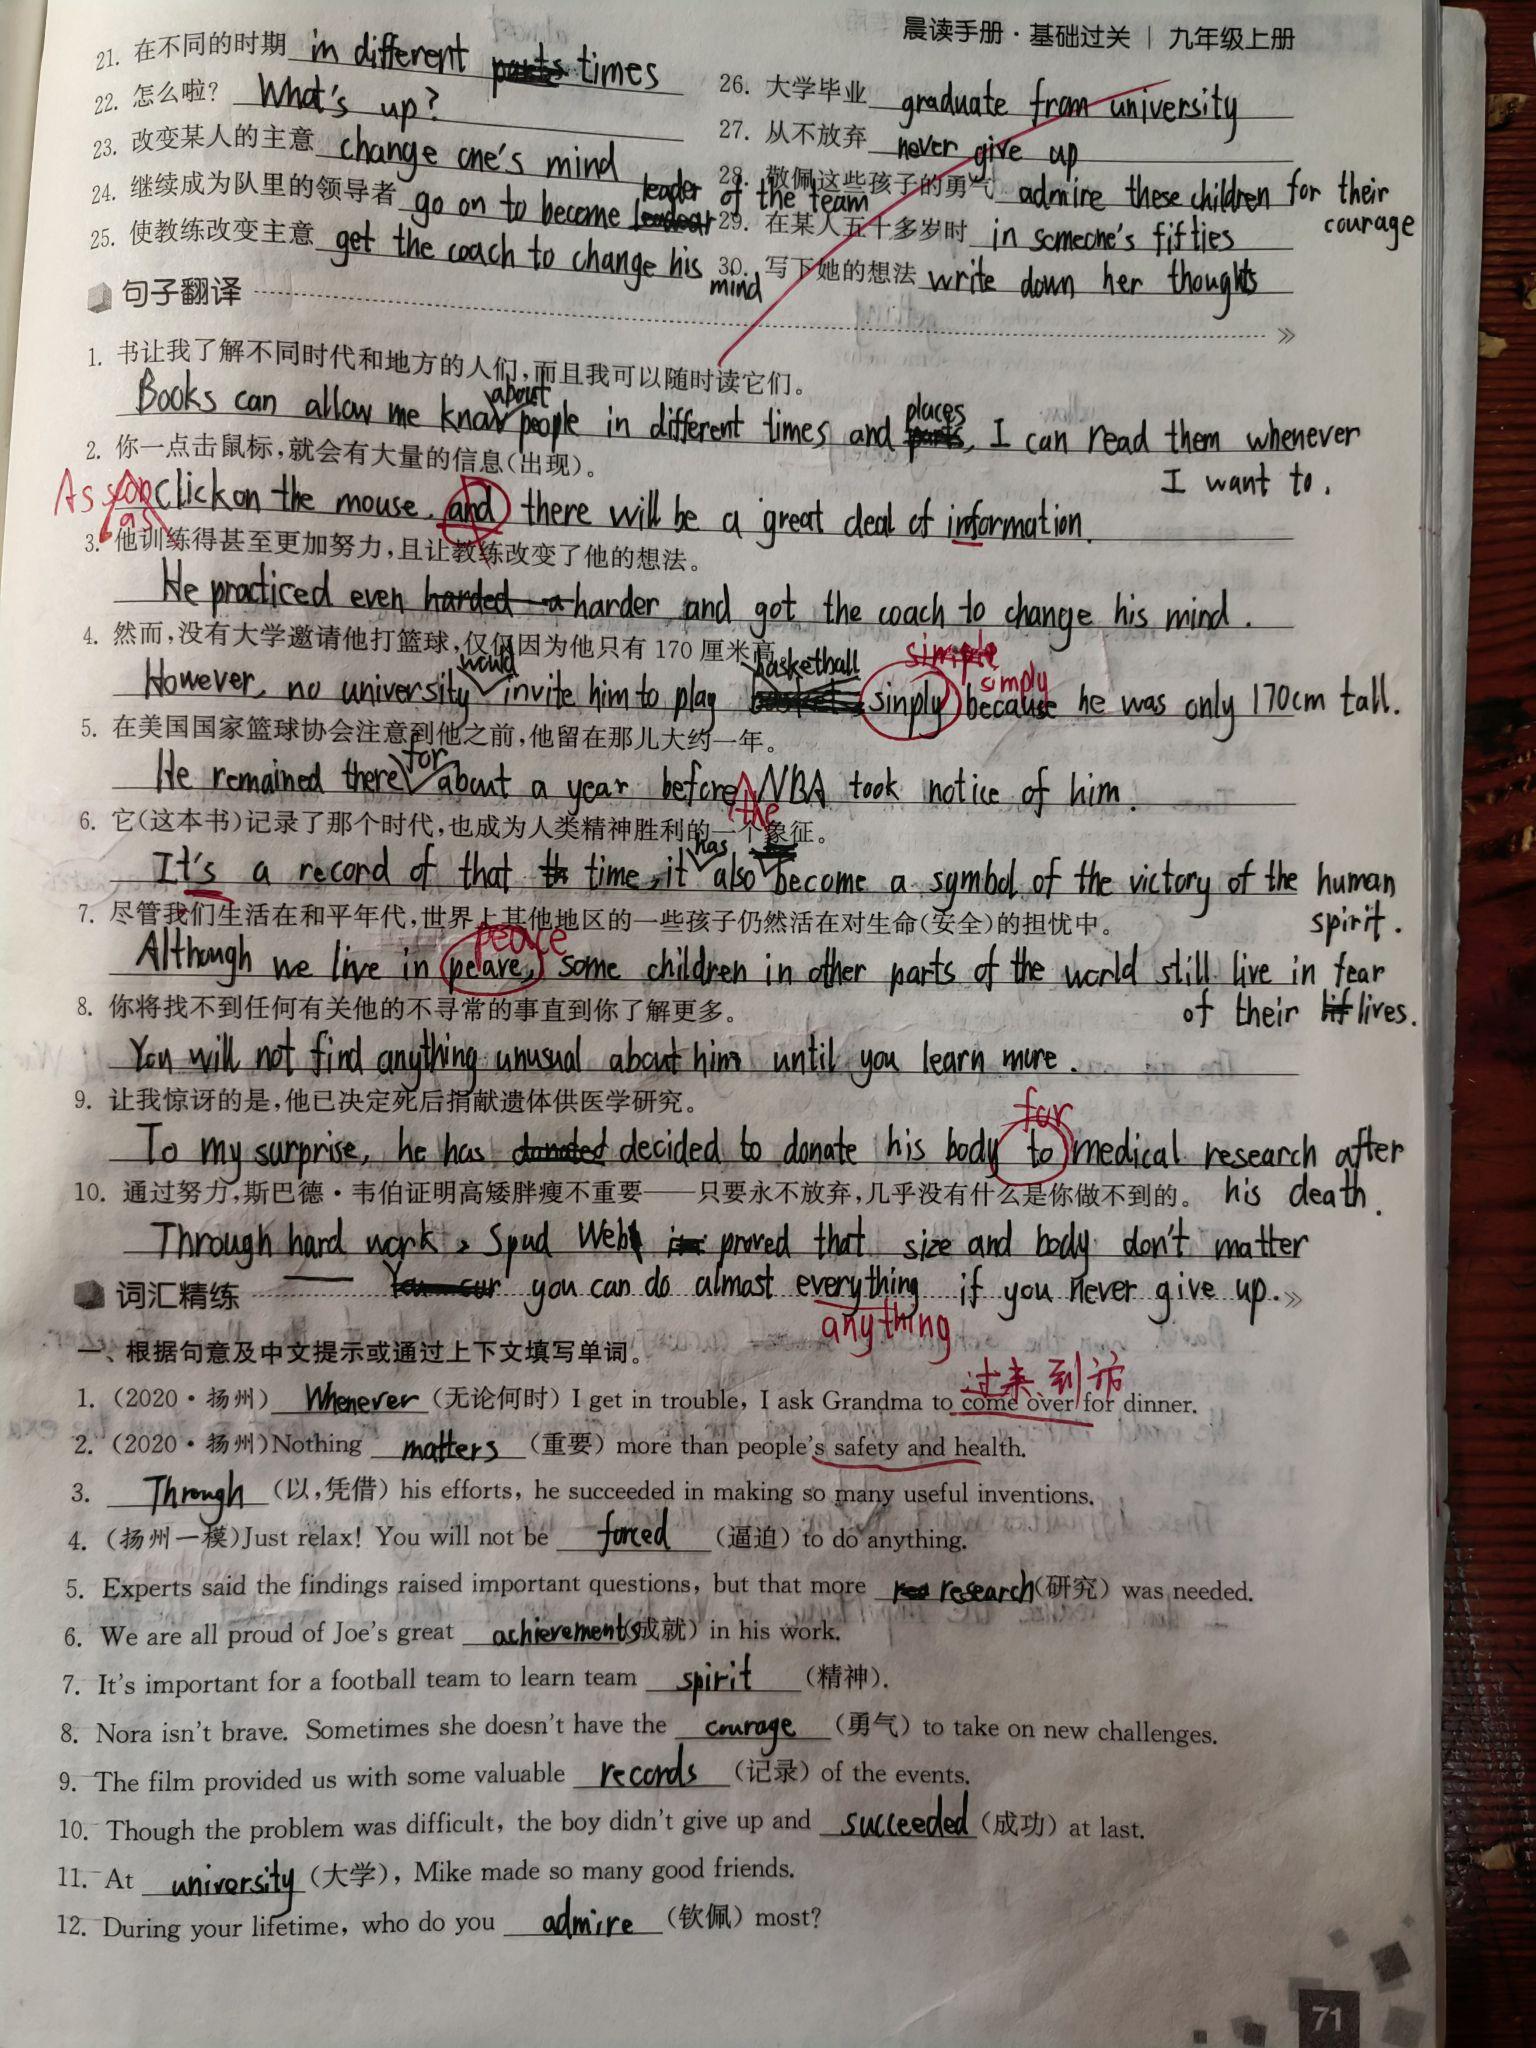 晨读手册·基础过关 | 九年级上册
21. 在不同的时期 in different times
22. 怎么啦? What's up?
23. 改变某人的主意 change one's mind
24. 继续成为队里的领导者 go on to become leader of the team
25. 使教练改变主意 get the coach to change his mind
26. 大学毕业 graduate from university
27. 从不放弃 never give up
28. 敬佩这些孩子的勇气 admire these children for their courage
29. 在某人五十多岁时 in someone's fifties
30. 写下她的想法 write down her thoughts
句子翻译
1. 书让我了解不同时代和地方的人们,而且我可以随时读它们。
Books can allow me know about people in different times and places, I can read them whenever
I want to.
2. 你一点击鼠标,就会有大量的信息(出现)。
As soon as Click on the mouse, and there will be a great deal of information.
3. 他训练得甚至更加努力,且让教练改变了他的想法。
He practiced even harder and got the coach to change his mind.
4. 然而,没有大学邀请他打篮球,仅仅因为他只有 170 厘米高
simple
simply
However, no university would invite him to play basketball sinply because he was only 170cm tall.
5. 在美国国家篮球协会注意到他之前,他留在那儿大约一年。
He remained there for about a year before the NBA took notice of him.
6. 它(这本书)记录了那个时代,也成为人类精神胜利的一个象征。
It's a record of that time, it has also become a symbol of the victory of the human
spirit.
7. 尽管我们生活在和平年代,世界上其他地区的一些孩子仍然活在对生命(安全)的担忧中。
peace
Although we live in peave, some children in other parts of the world still live in fear
of their lives.
8. 你将找不到任何有关他的不寻常的事直到你了解更多。
You will not find anything unusual about him until you learn more.
9. 让我惊讶的是,他已决定死后捐献遗体供医学研究。
for
To my surprise, he has decided to donate his body to medical research after
his death.
10. 通过努力,斯巴德·韦伯证明高矮胖瘦不重要——只要永不放弃,几乎没有什么是你做不到的。
Through hard work, Spud Web proved that size and body don't matter
—— you can do almost everything if you never give up.
anything
词汇精练
一、根据句意及中文提示或通过上下文填写单词。
过来 到访
1. (2020·扬州) Whenever (无论何时) I get in trouble, I ask Grandma to come over for dinner.
2. (2020·扬州)Nothing matters (重要) more than people's safety and health.
3. Through (以,凭借) his efforts, he succeeded in making so many useful inventions.
4. (扬州一模)Just relax! You will not be forced (逼迫) to do anything.
5. Experts said the findings raised important questions, but that more research(研究) was needed.
6. We are all proud of Joe's great achievements(成就) in his work.
7. It's important for a football team to learn team spirit (精神).
8. Nora isn't brave. Sometimes she doesn't have the courage (勇气) to take on new challenges.
9. The film provided us with some valuable records (记录) of the events.
10. Though the problem was difficult, the boy didn't give up and succeeded (成功) at last.
11. At university (大学), Mike made so many good friends.
12. During your lifetime, who do you admire (钦佩) most?
71